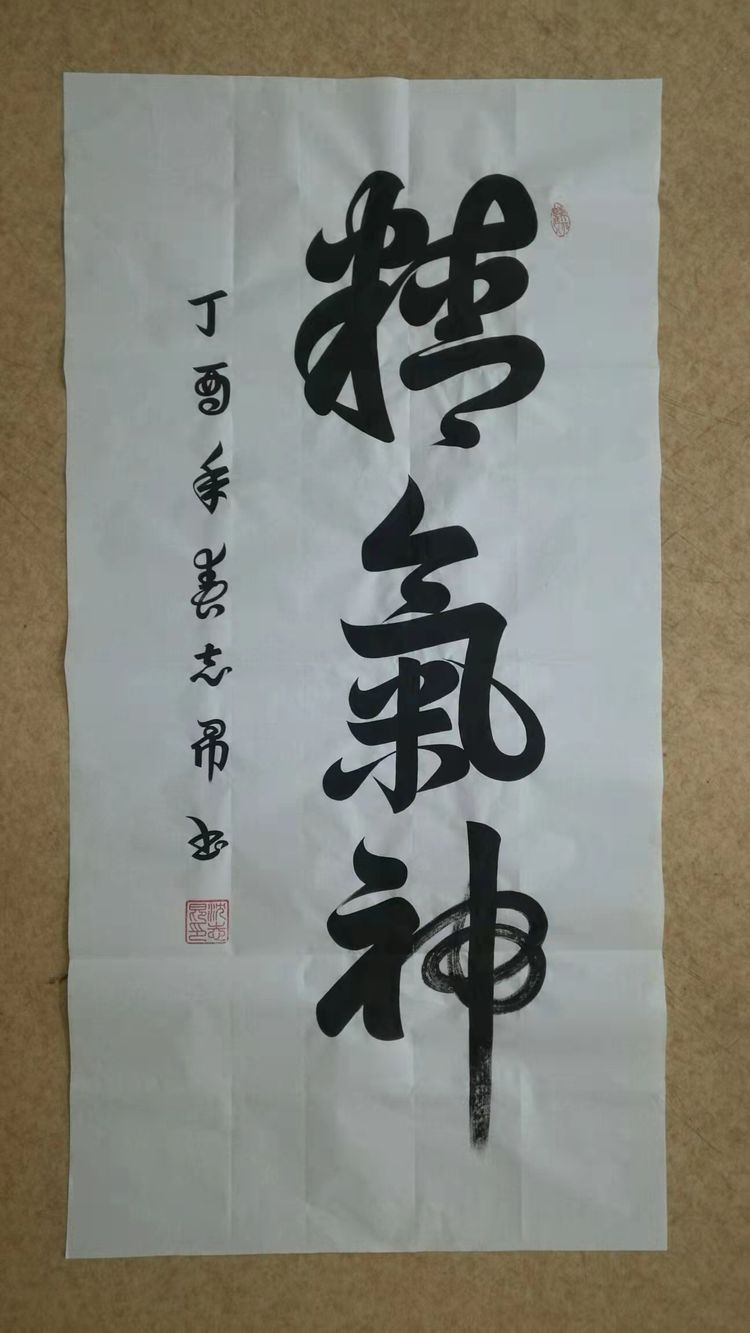 精氣神
丁酉年春志昂书